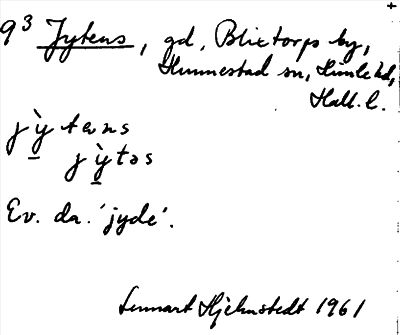 9³ Jytens, gd, Blixtorps by,
Hunnestad sn, Himle hd,
Hall. l.
jỳ̱tens
jỳ̱təs
Ev. da. 'jyde'.
Lennart Hjelmstedt 1961